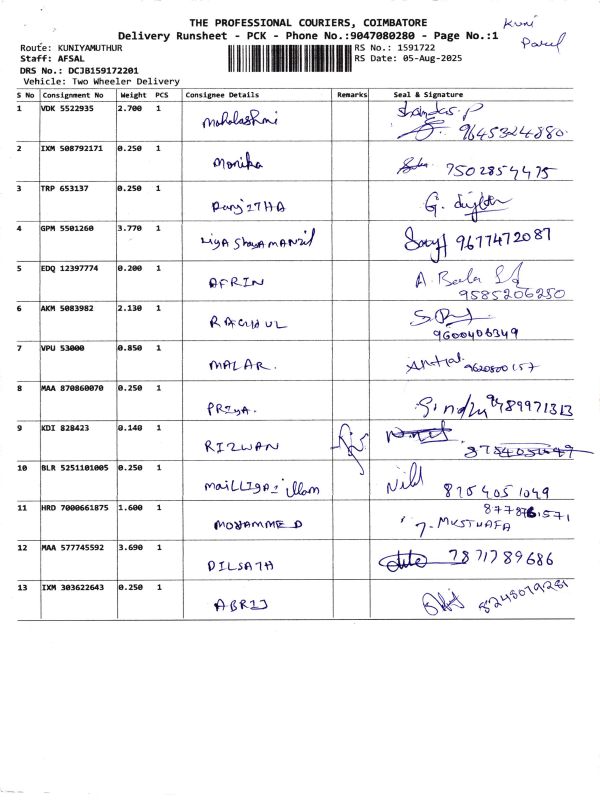 THE PROFESSIONAL COURIERS, COIMBATORE
Kuni
Delivery Runsheet - PCK - Phone No.:9047080280 - Page No.:1
Parcel
Route: KUNIYAMUTHUR
RS No.: 1591722
Staff: AFSAL
RS Date: 05-Aug-2025
DRS No.: DCJB159172201
Vehicle: Two Wheeler Delivery
S No Consignment No Weight PCS Consignee Details Remarks Seal & Signature
1 VDK 5522935 2.700 1 Mahalashmi
9645324880
2 IXM 508792171 0.250 1 Monika 7502854475
3 TRP 653137 0.250 1 RanjITHA G.
4 GPM 5501260 3.770 1 9677472087
5 EDQ 12397774 0.200 1 AFRIN A.
9585206250
6 AKM 5083982 2.130 1
9600406349
7 VPU 53000 0.850 1 MALAR. 9620800157
8 MAA 870860070 0.250 1 PRIYA. 9789971313
9 KDI 828423 0.140 1 RIZWAN
10 BLR 5251101005 0.250 1 illam 8754051049
11 HRD 7000661875 1.600 1 MOHAMMED MUSTHAFA
12 MAA 577745592 3.690 1 DILSATH 7871789686
13 IXM 303622643 0.250 1 8248079281